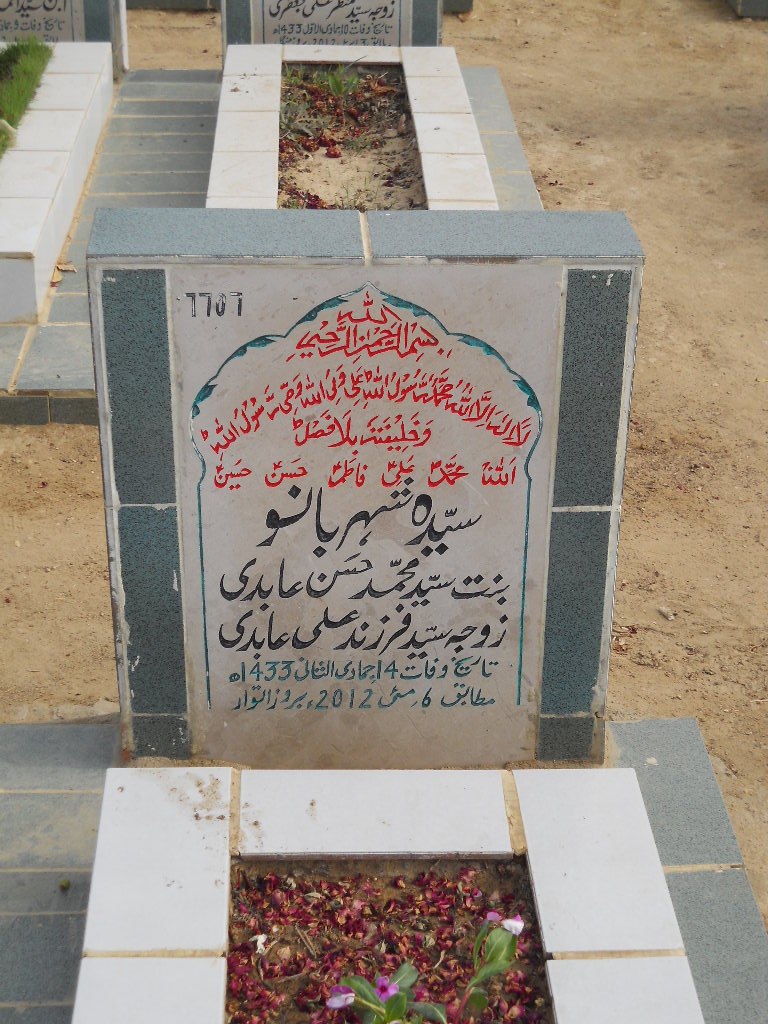 زوجہ سید منظر علی جعفری
٦٦٥٦
الله
بسم الله الرحمن الرحيم
لا اله الا الله محمد رسول الله علی ولی الله وصی رسول الله
وخلیفته بلا فصل
الله محمد علی فاطمہ حسن حسین
سیّدہ شہربانو
بنت سیّد محمّد حسن عابدی
زوجہ سیّد فرزند علی عابدی
تاریخ وفات 14 جمادی الثانی 1433ھ
مطابق 6 مئی 2012ء بروز اتوار